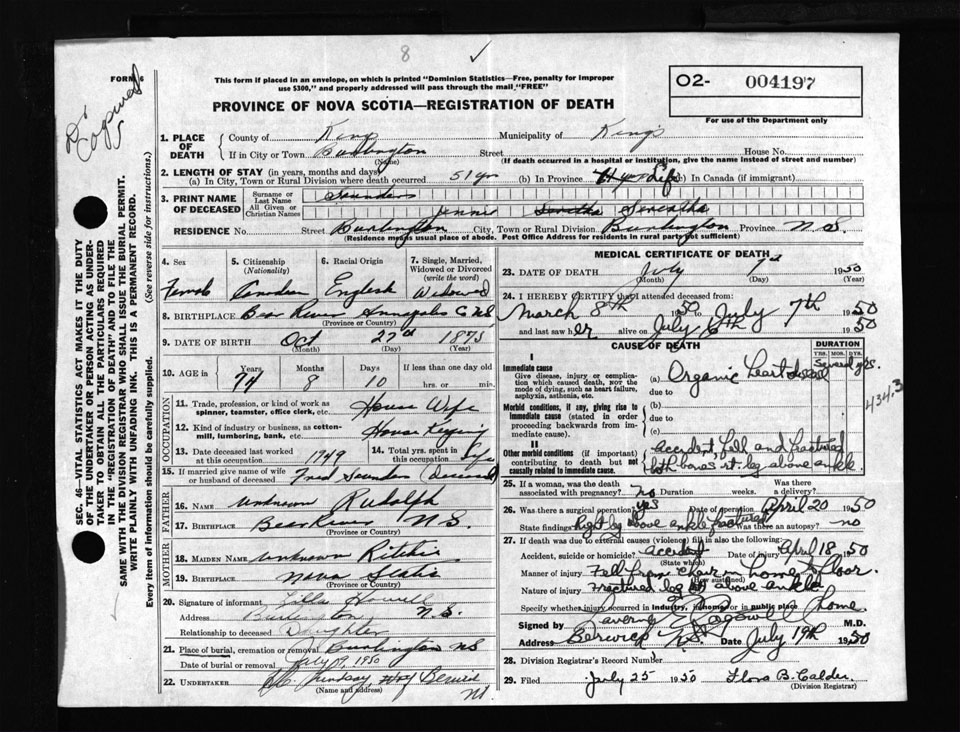 8 ✓
FORM 6
This form if placed in an envelope, on which is printed "Dominion Statistics—Free, penalty for improper
use $300," and properly addressed will pass through the mail "FREE"
PROVINCE OF NOVA SCOTIA—REGISTRATION OF DEATH
O2- 004197
For use of the Department only
Copied
SEC. 46—VITAL STATISTICS ACT MAKES IT THE DUTY
OF THE UNDERTAKER OR PERSON ACTING AS UNDER-
TAKER TO OBTAIN ALL THE PARTICULARS REQUIRED
IN THE "REGISTRATION OF DEATH" AND TO FILE THE
SAME WITH THE DIVISION REGISTRAR WHO SHALL ISSUE THE BURIAL PERMIT.
WRITE PLAINLY WITH UNFADING INK. THIS IS A PERMANENT RECORD.
Every item of information should be carefully supplied. (See reverse side for instructions.)
1. PLACE OF DEATH County of Kings Municipality of Kings
If in City or Town Burlington (Name) Street House No.
(If death occurred in a hospital or institution, give the name instead of street and number)
2. LENGTH OF STAY (in years, months and days)
(a) In City, Town or Rural Division where death occurred 51 yr (b) In Province Life (c) In Canada (if immigrant)
3. PRINT NAME OF DECEASED Surname or Last Name Saunders
All Given or Christian Names Jennie Serentha
RESIDENCE No. Street Burlington City, Town or Rural Division Burlington Province N.S.
(Residence means usual place of abode. Post Office Address for residents in rural parts not sufficient)
4. Sex Female
5. Citizenship (Nationality) Canadian
6. Racial Origin English
7. Single, Married, Widowed or Divorced (write the word) Widowed
8. BIRTHPLACE Bear River Annapolis Co N.S.
(Province or County)
9. DATE OF BIRTH Oct 27th 1875
(Month) (Day) (Year)
10. AGE in Years 74 Months 8 Days 10 If less than one day old hrs. or min.
OCCUPATION
11. Trade, profession, or kind of work as spinner, teamster, office clerk, etc. House Wife
12. Kind of industry or business, as cotton-mill, lumbering, bank, etc. House Keeping
13. Date deceased last worked at this occupation 1949 14. Total yrs. spent in this occupation Life
15. If married give name of wife or husband of deceased Fred Saunders (deceased)
FATHER
16. Name unknown Rudolph
17. BIRTHPLACE Bear River N.S.
(Province or County)
MOTHER
18. MAIDEN NAME unknown Ritchie
19. BIRTHPLACE Nova Scotia
(Province or County)
20. Signature of informant Howell
Address Burlington N.S.
Relationship to deceased Daughter
21. Place of burial, cremation or removal Burlington NS
Date of burial or removal July 9, 1950
22. UNDERTAKER Lindsay Berwick
(Name and address) NS
MEDICAL CERTIFICATE OF DEATH
23. DATE OF DEATH July 7th 1950
(Month) (Day) (Year)
24. I HEREBY CERTIFY that I attended deceased from:
March 8th 1950 to July 7th 1950
and last saw her alive on July 6th 1950
CAUSE OF DEATH DURATION
YRS. MOS. DYS.
I
Immediate cause
Give disease, injury or complication which caused death, NOT the mode of dying, such as heart failure, asphyxia, asthenia, etc.
(a) Organic Heart disease Several yrs.
due to
Morbid conditions, if any, giving rise to immediate cause (stated in order proceeding backwards from immediate cause).
(b)
due to
(c)
434.3
II
Other morbid conditions (if important) contributing to death but not causally related to immediate cause.
Accident, fell and fractured
both bones rt. leg above ankle
25. If a woman, was the death associated with pregnancy? no Duration weeks. Was there a delivery?
26. Was there a surgical operation? yes Date of operation April 20 1950
State findings Right leg above ankle fractured Was there an autopsy? no
27. If death was due to external causes (violence) fill in also the following:
Accident, suicide or homicide? Accident Date of injury April 18 1950
(State which)
Manner of injury Fell from chair in home to floor.
(How sustained)
Nature of injury Fractured leg rt above ankle
Specify whether injury occurred in industry, in home or in public place home
Signed by M.D.
Address Berwick N.S. Date July 19th 1950
28. Division Registrar's Record Number
29. Filed July 25 1950 Flora B. Calder
(Division Registrar)